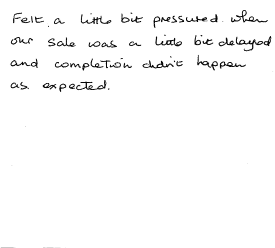 Felt a little bit pressured when
our sale was a little bit delayed
and completion didn't happen
as expected.